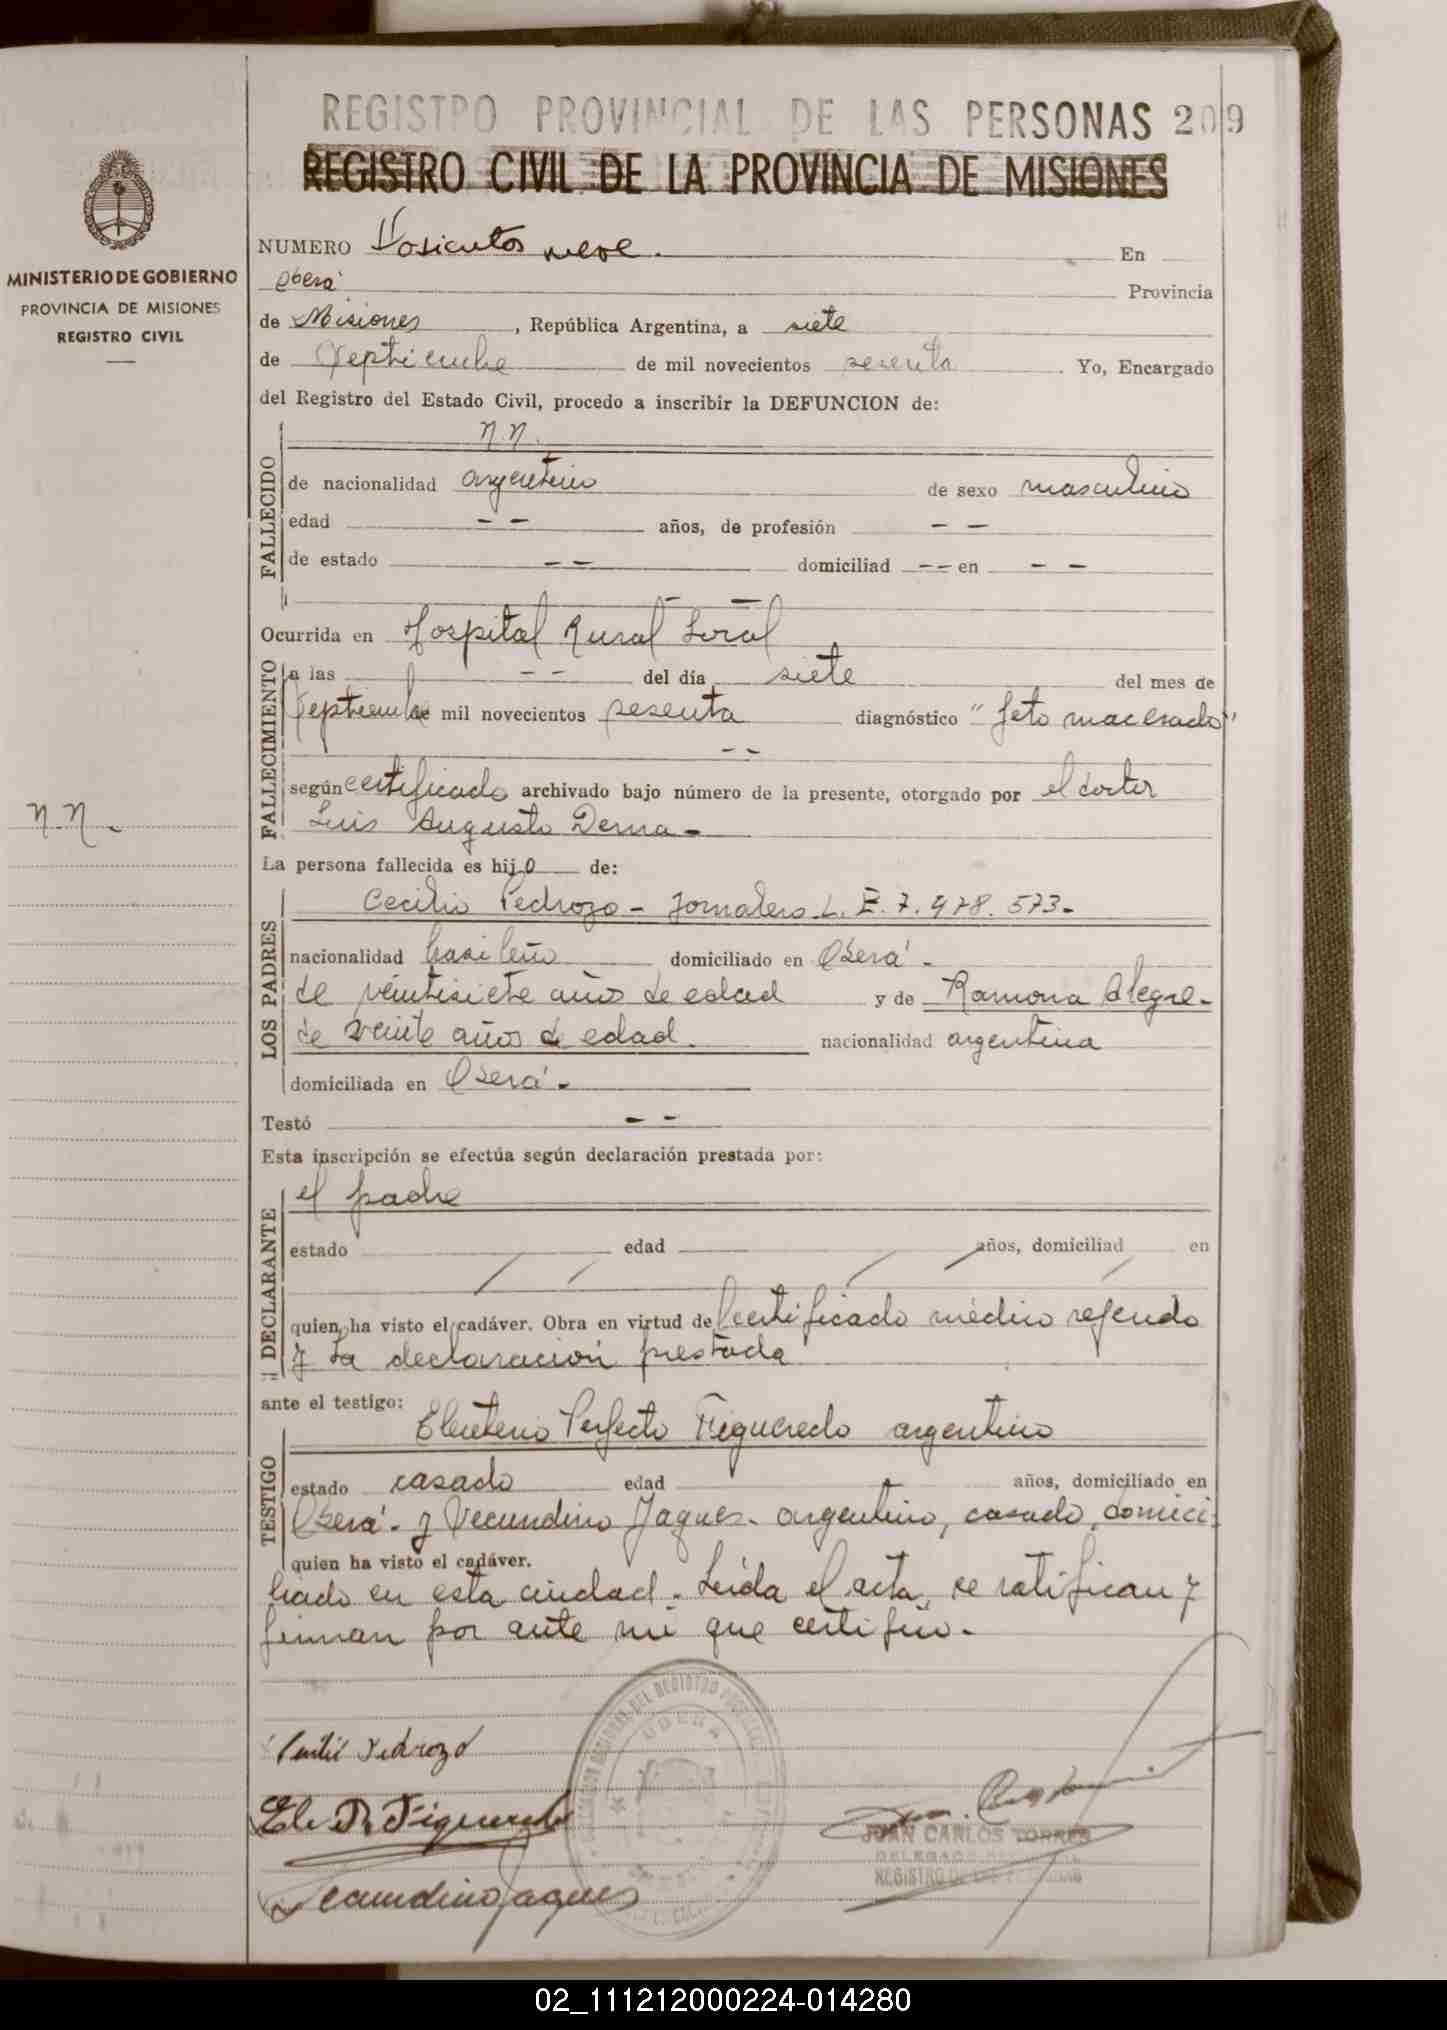 REGISTRO PROVINCIAL DE LAS PERSONAS 209
REGISTRO CIVIL DE LA PROVINCIA DE MISIONES
MINISTERIO DE GOBIERNO
PROVINCIA DE MISIONES
REGISTRO CIVIL
NUMERO Dosientos nueve. En
Oberá Provincia
de Misiones, República Argentina, a siete
de Septiembre de mil novecientos sesenta. Yo, Encargado
del Registro del Estado Civil, procedo a inscribir la DEFUNCION de:
FALLECIDO
N.N.
de nacionalidad argentino de sexo masculino
edad -- años, de profesión --
de estado -- domiciliad -- en --
Ocurrida en Hospital Rural Local
FALLECIMIENTO
a las -- del día siete del mes de
Septiembre mil novecientos sesenta diagnóstico "feto macerado"
--
según certificado archivado bajo número de la presente, otorgado por el doctor
Luis Augusto Derna-
N.N.-
La persona fallecida es hijo de:
LOS PADRES
Cecilio Pedrozo - Jornalero L. E. 7.478.573-
nacionalidad brasileño domiciliado en Oberá-
de veintisiete años de edad y de Ramona Alegre-
de veinte años de edad. nacionalidad argentina
domiciliada en Oberá-
Testó --
Esta inscripción se efectúa según declaración prestada por:
DECLARANTE
el padre
estado edad años, domiciliad en
quien ha visto el cadáver. Obra en virtud de certificado médico referido
y la declaración prestada
ante el testigo:
TESTIGO
Eleuterio Perfecto Figueredo argentino
estado casado edad años, domiciliado en
Oberá- y Secundino Jaques- argentino, casado, domici
quien ha visto el cadáver.
liado en esta ciudad- Leída el acta, se ratifican y
firman por ante mí que certifico-
Pedrozo
Ele P. Figueredo
Secundino Jaques
OBERA
JUAN CARLOS TORRES
DELEGADO
REGISTRO DE LAS PERSONAS
02_111212000224-014280